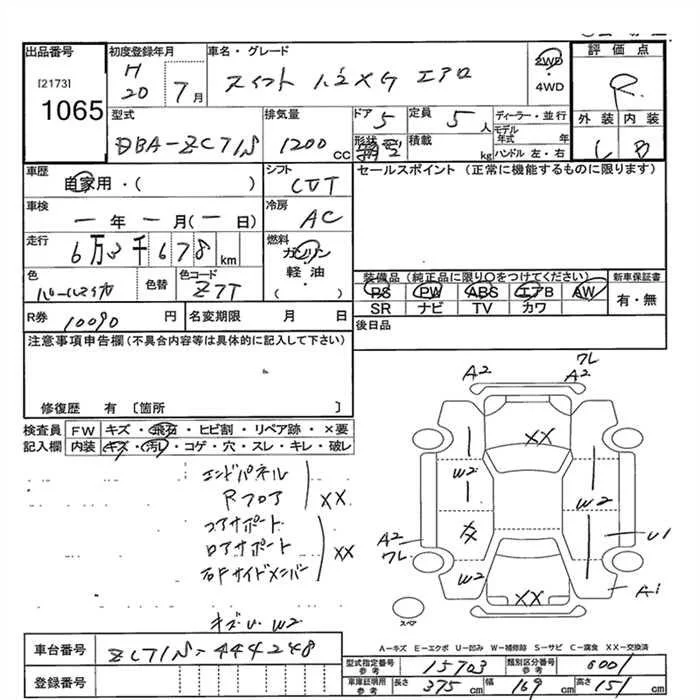 出品番号 初度登録年月 車名・グレード 2WD 4WD 評価点
[2173]
1065
H20 7月 スイフト 1.2XG エアロ R
型式 排気量 ドア 定員 ディーラー・並行 外装 内装
DBA-ZC71S 1200 CC 5 5人 モデル年式 年
形状 積載 kg ハンドル 左・右 C B
車歴 シフト セールスポイント (正常に機能するものに限ります)
自家用・( ) CVT
車検 冷房
ー年ー月(ー日) AC
走行 燃料
6万3千678km ガソリン・軽油・( )
色 色替 色コード 装備品(純正品に限り○をつけてください) 新車保証書
パールホワイト Z7T PS PW ABS エアB AW 有・無
SR ナビ TV カワ
R券 10090円 名変期限 月 日 後日品
注意事項申告欄(不具合内容等は具体的に記入して下さい)
修復歴 有 〔箇所 〕
検査員 FW キズ・飛石・ヒビ割・リペア跡・×要
記入欄 内装 キズ・汚レ・コゲ・穴・スレ・キレ・破レ
エンドパネル
Rフロア XX
コアサポート
ロアサポート XX
右Fサイドメンバー
キズU W2
A2 A2 ワレ
XX
W2 W2
XX
A2 ワレ U1
W2 XX A1
スペア
A-キズ E-エクボ U-凹み W-補修跡 S-サビ C-腐食 XX-交換済
車台番号 ZC71S-444248
登録番号
型式指定番号 参考 15703 類別区分番号 参考 0001
車庫証明用 参考 長さ 375cm 幅 169cm 高さ 151cm